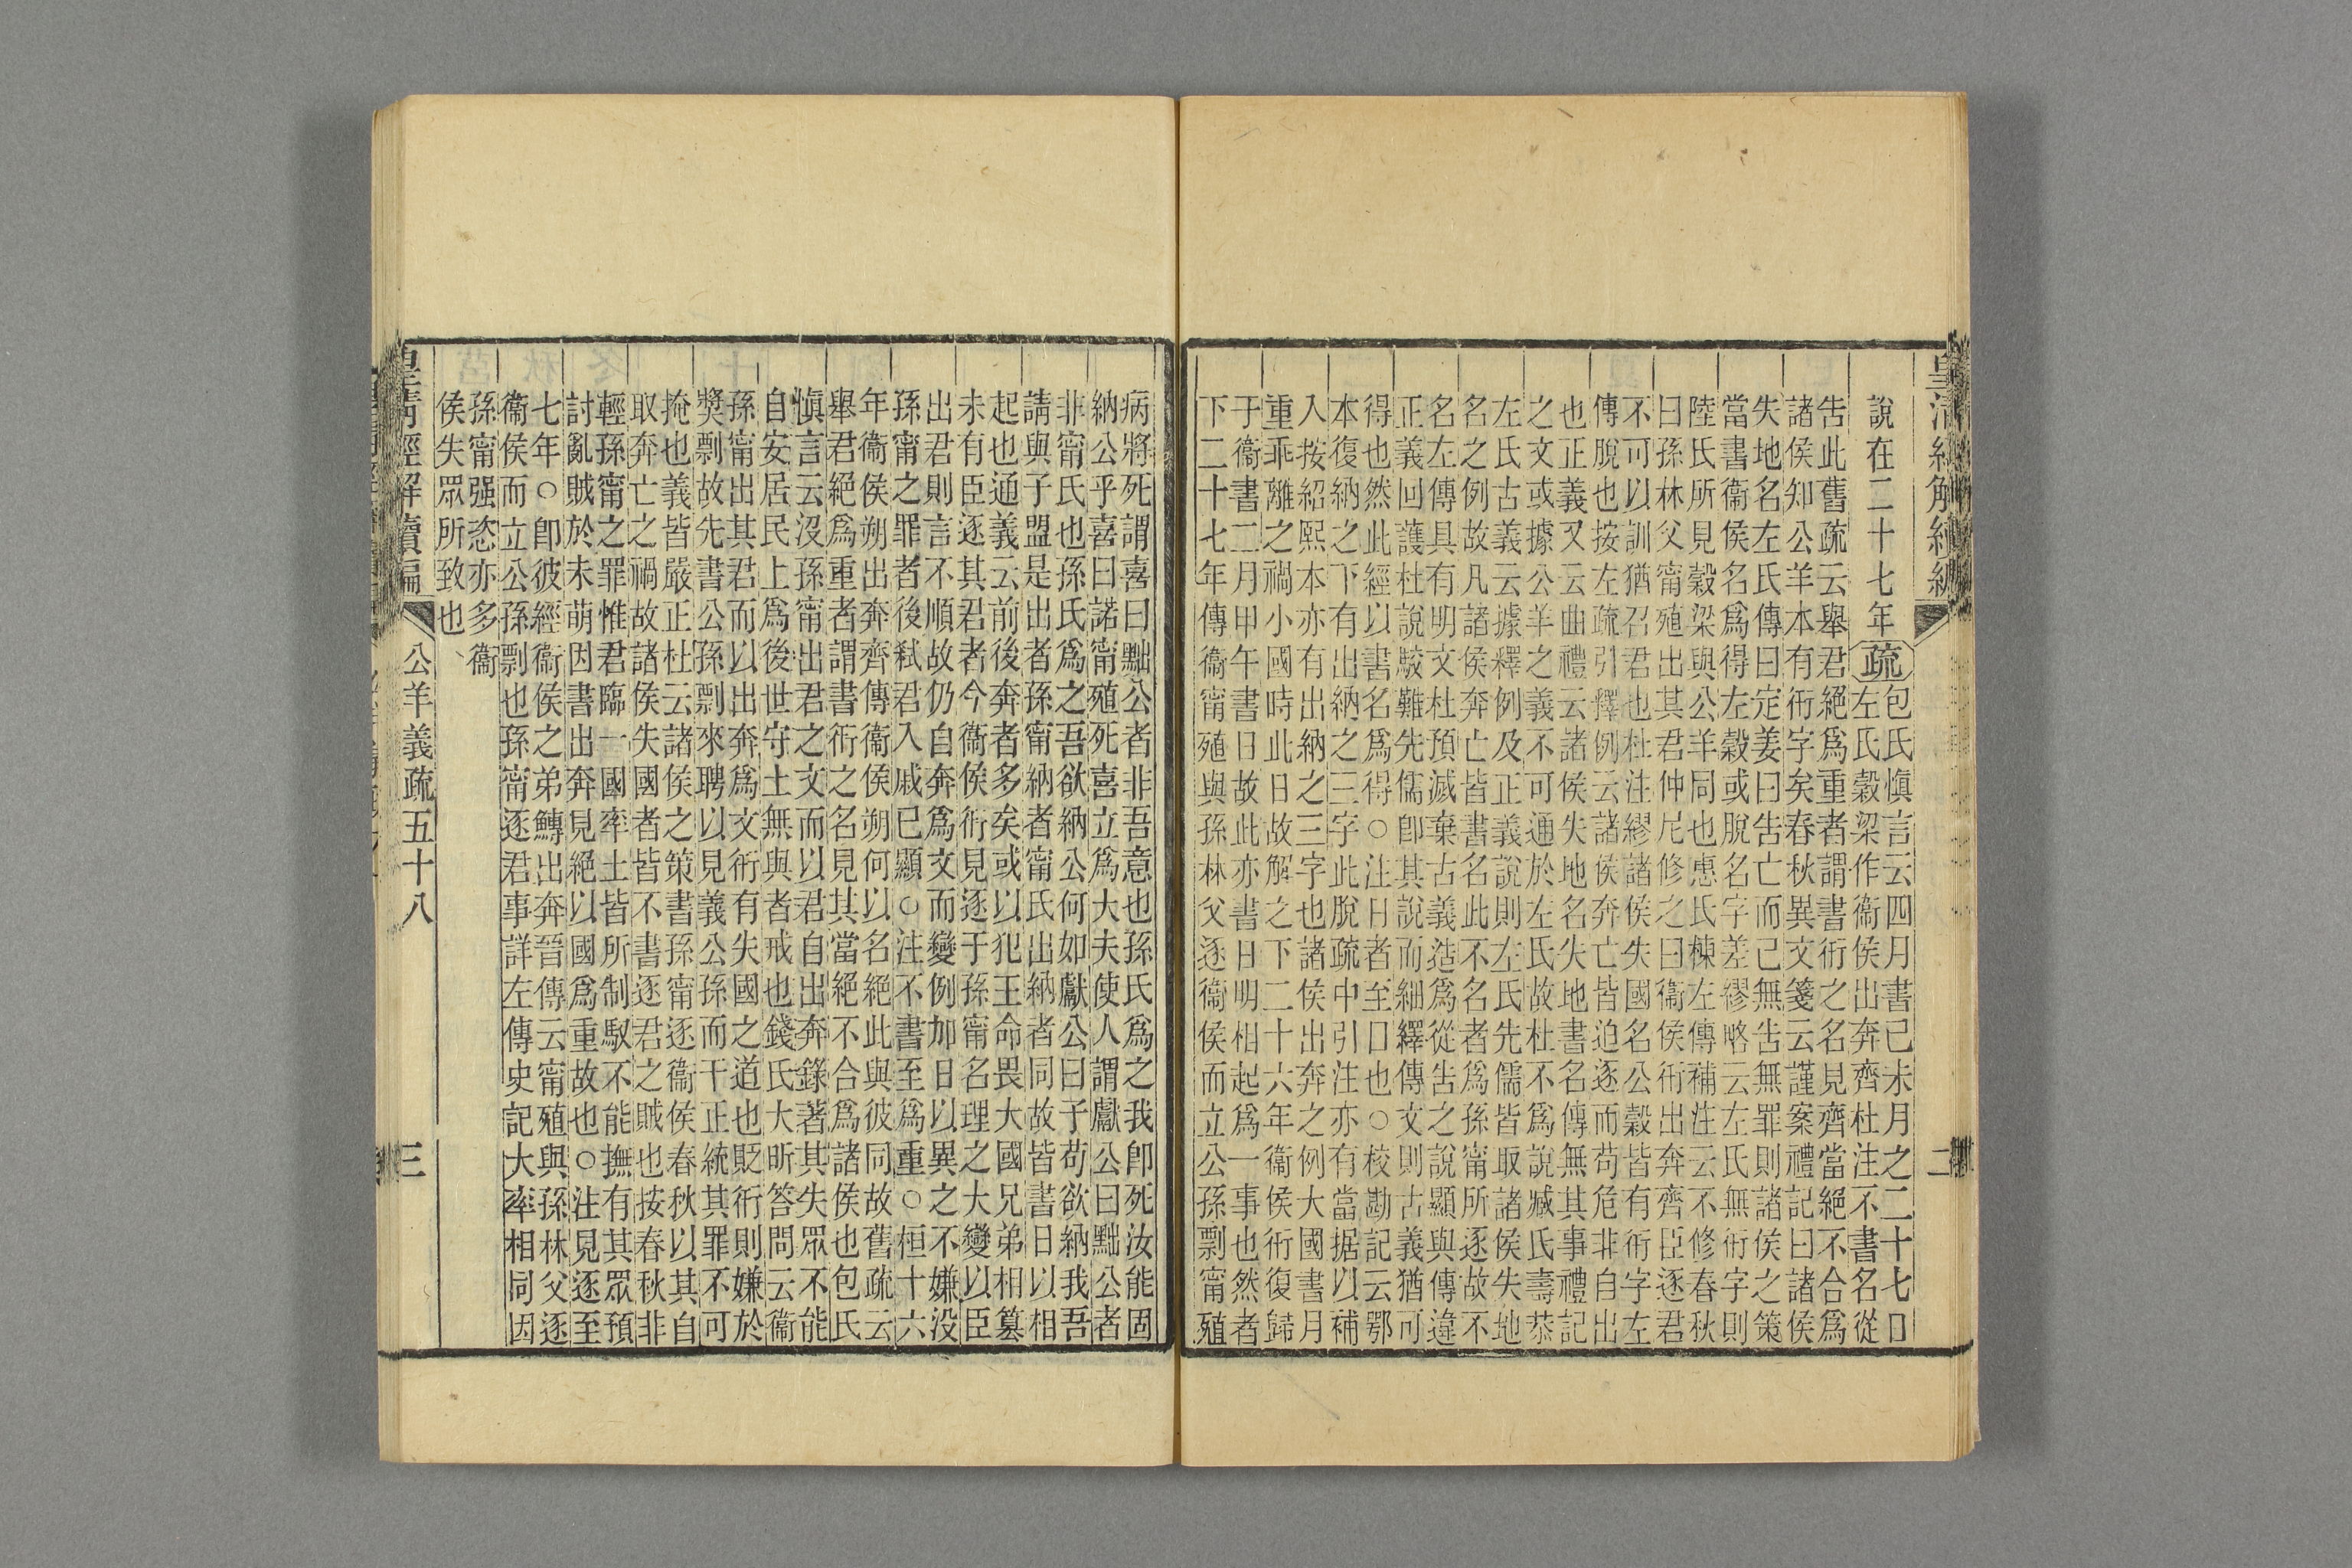 皇清經解續編
二
說在二十七年
疏
包氏愼言云四月書己未月之二十七日
左氏穀梁作衞侯出奔齊杜注不書名從
告此舊疏云舉君絕爲重者謂書衎之名見齊當絕不合爲
諸侯知公羊本有衎字矣春秋異文箋云謹案禮記曰諸侯
失地名左氏傳曰定姜曰告亡而已無告無罪則諸侯之策
當書衞侯名爲得左穀或脫名字差繆略云左氏無衎字則
陸氏所見穀梁與公羊同也惠氏棟左傳補注云不修春秋
曰孫林父甯殖出其君仲尼修之曰衞侯衎出奔齊臣逐君
不可以訓猶召君也杜注繆諸侯失國名公穀皆有衎字左
傳脫也按左疏引釋例云諸侯奔亡皆迫逐而苟危非自出
也正義又云曲禮云諸侯失地名失地書名傳無其事禮記
之文或據公羊之義不可通於左氏故杜不爲說臧氏壽恭
左氏古義云據釋例及正義說則左氏先儒皆取諸侯失地
名之例故凡諸侯奔亡皆書名此不名者爲孫甯所逐故不
名左傳具有明文杜預滅棄古義造爲從告之說顯與傳違
正義回護杜說駁難先儒卽其說而細繹傳文則古義猶可
得也然此經以書名爲得○注日者至日也○校勘記云鄂
本復納之下有出納之三字此脫疏中引注亦有當据以補
入按紹熙本亦有出納之三字也諸侯出奔之例大國書月
重乖離之禍小國時此日故解之下二十六年衞侯衎復歸
于衞書二月甲午書日故此亦書日明相起爲一事也然者
下二十七年傳衞甯殖與孫林父逐衞侯而立公孫剽甯殖
病將死謂喜曰黜公者非吾意也孫氏爲之我卽死汝能固
納公乎喜曰諾甯殖死喜立爲大夫使人謂獻公曰黜公者
非甯氏也孫氏爲之吾欲納公何如獻公曰子苟欲納我吾
請與子盟是出者孫甯納者甯氏出納者同故皆書日以相
起也通義云前後奔者多矣或以犯王命畏大國兄弟相簒
未有臣逐其君者今衞侯衎見逐于孫甯名理之大變以臣
出君則言不順故仍自奔爲文而變例加日以異之不嫌没
孫甯之罪者後弒君入戚已顯○注不書至爲重○桓十六
年衞侯朔出奔齊傳衞侯朔何以名絕此與彼同故舊疏云
舉君絕爲重者謂書衎之名見其當絕不合爲諸侯也包氏
愼言云沒孫甯出君之文而以君自出奔錄著其失眾不能
自安居民上爲後世守土無與者戒也錢氏大昕答問云衞
孫甯出其君而以出奔爲文衎有失國之道也貶衎則嫌於
奬剽故先書公孫剽來聘以見義公孫而干正統其罪不可
掩也義皆嚴正杜云諸侯之策書孫甯逐衞侯春秋以其自
取奔亡之禍故諸侯失國者皆不書逐君之賊也按春秋非
輕孫甯之罪惟君臨一國率土皆所制馭不能撫有其眾預
討亂賊於未萌因書出奔見絕以國爲重故也○注見逐至
七年○卽彼經衞侯之弟鱄出奔晉傳云甯殖與孫林父逐
衞侯而立公孫剽也孫甯逐君事詳左傳史記大率相同因
孫甯强恣亦多衞
侯失眾所致也
皇清經解續編
公羊義疏五十八
三